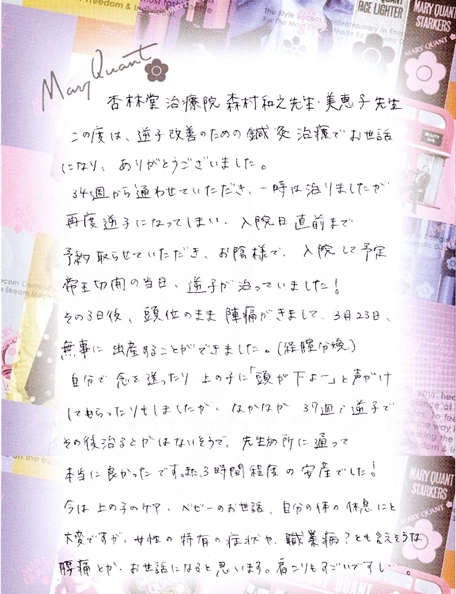 Mary Quant
杏林堂治療院 森村和之先生・美恵子先生
この度は、逆子改善のための鍼灸治療でお世話
になり、ありがとうございました。
34週から通わせていただき、一時は治りましたが
再度逆子になってしまい、入院日直前まで
予約取らせていただき、お陰様で、入院して予定
帝王切開の当日、逆子が治っていました!
その3日後、頭位のまま陣痛がきまして、3月23日、
無事に出産することができました。(経腟分娩)
自分で念を送ったり上の子に「頭が下よー」と声がけ
してもらったりもしましたが、なかなか37週で逆子で
その後治るとかはないそうで、先生の所に通って
本当に良かったです。また、3時間程度の安産でした!
今は上の子のケア、ベビーのお世話、自分の体の休息にと
大変ですが、女性の特有の症状や、職業病?とも言えそうな
腰痛とか、お世話になると思います。肩こりもすごいですし…。
MARY QUANT
STARKERS
MARY QUANT
MARY QUANT
STARKERS